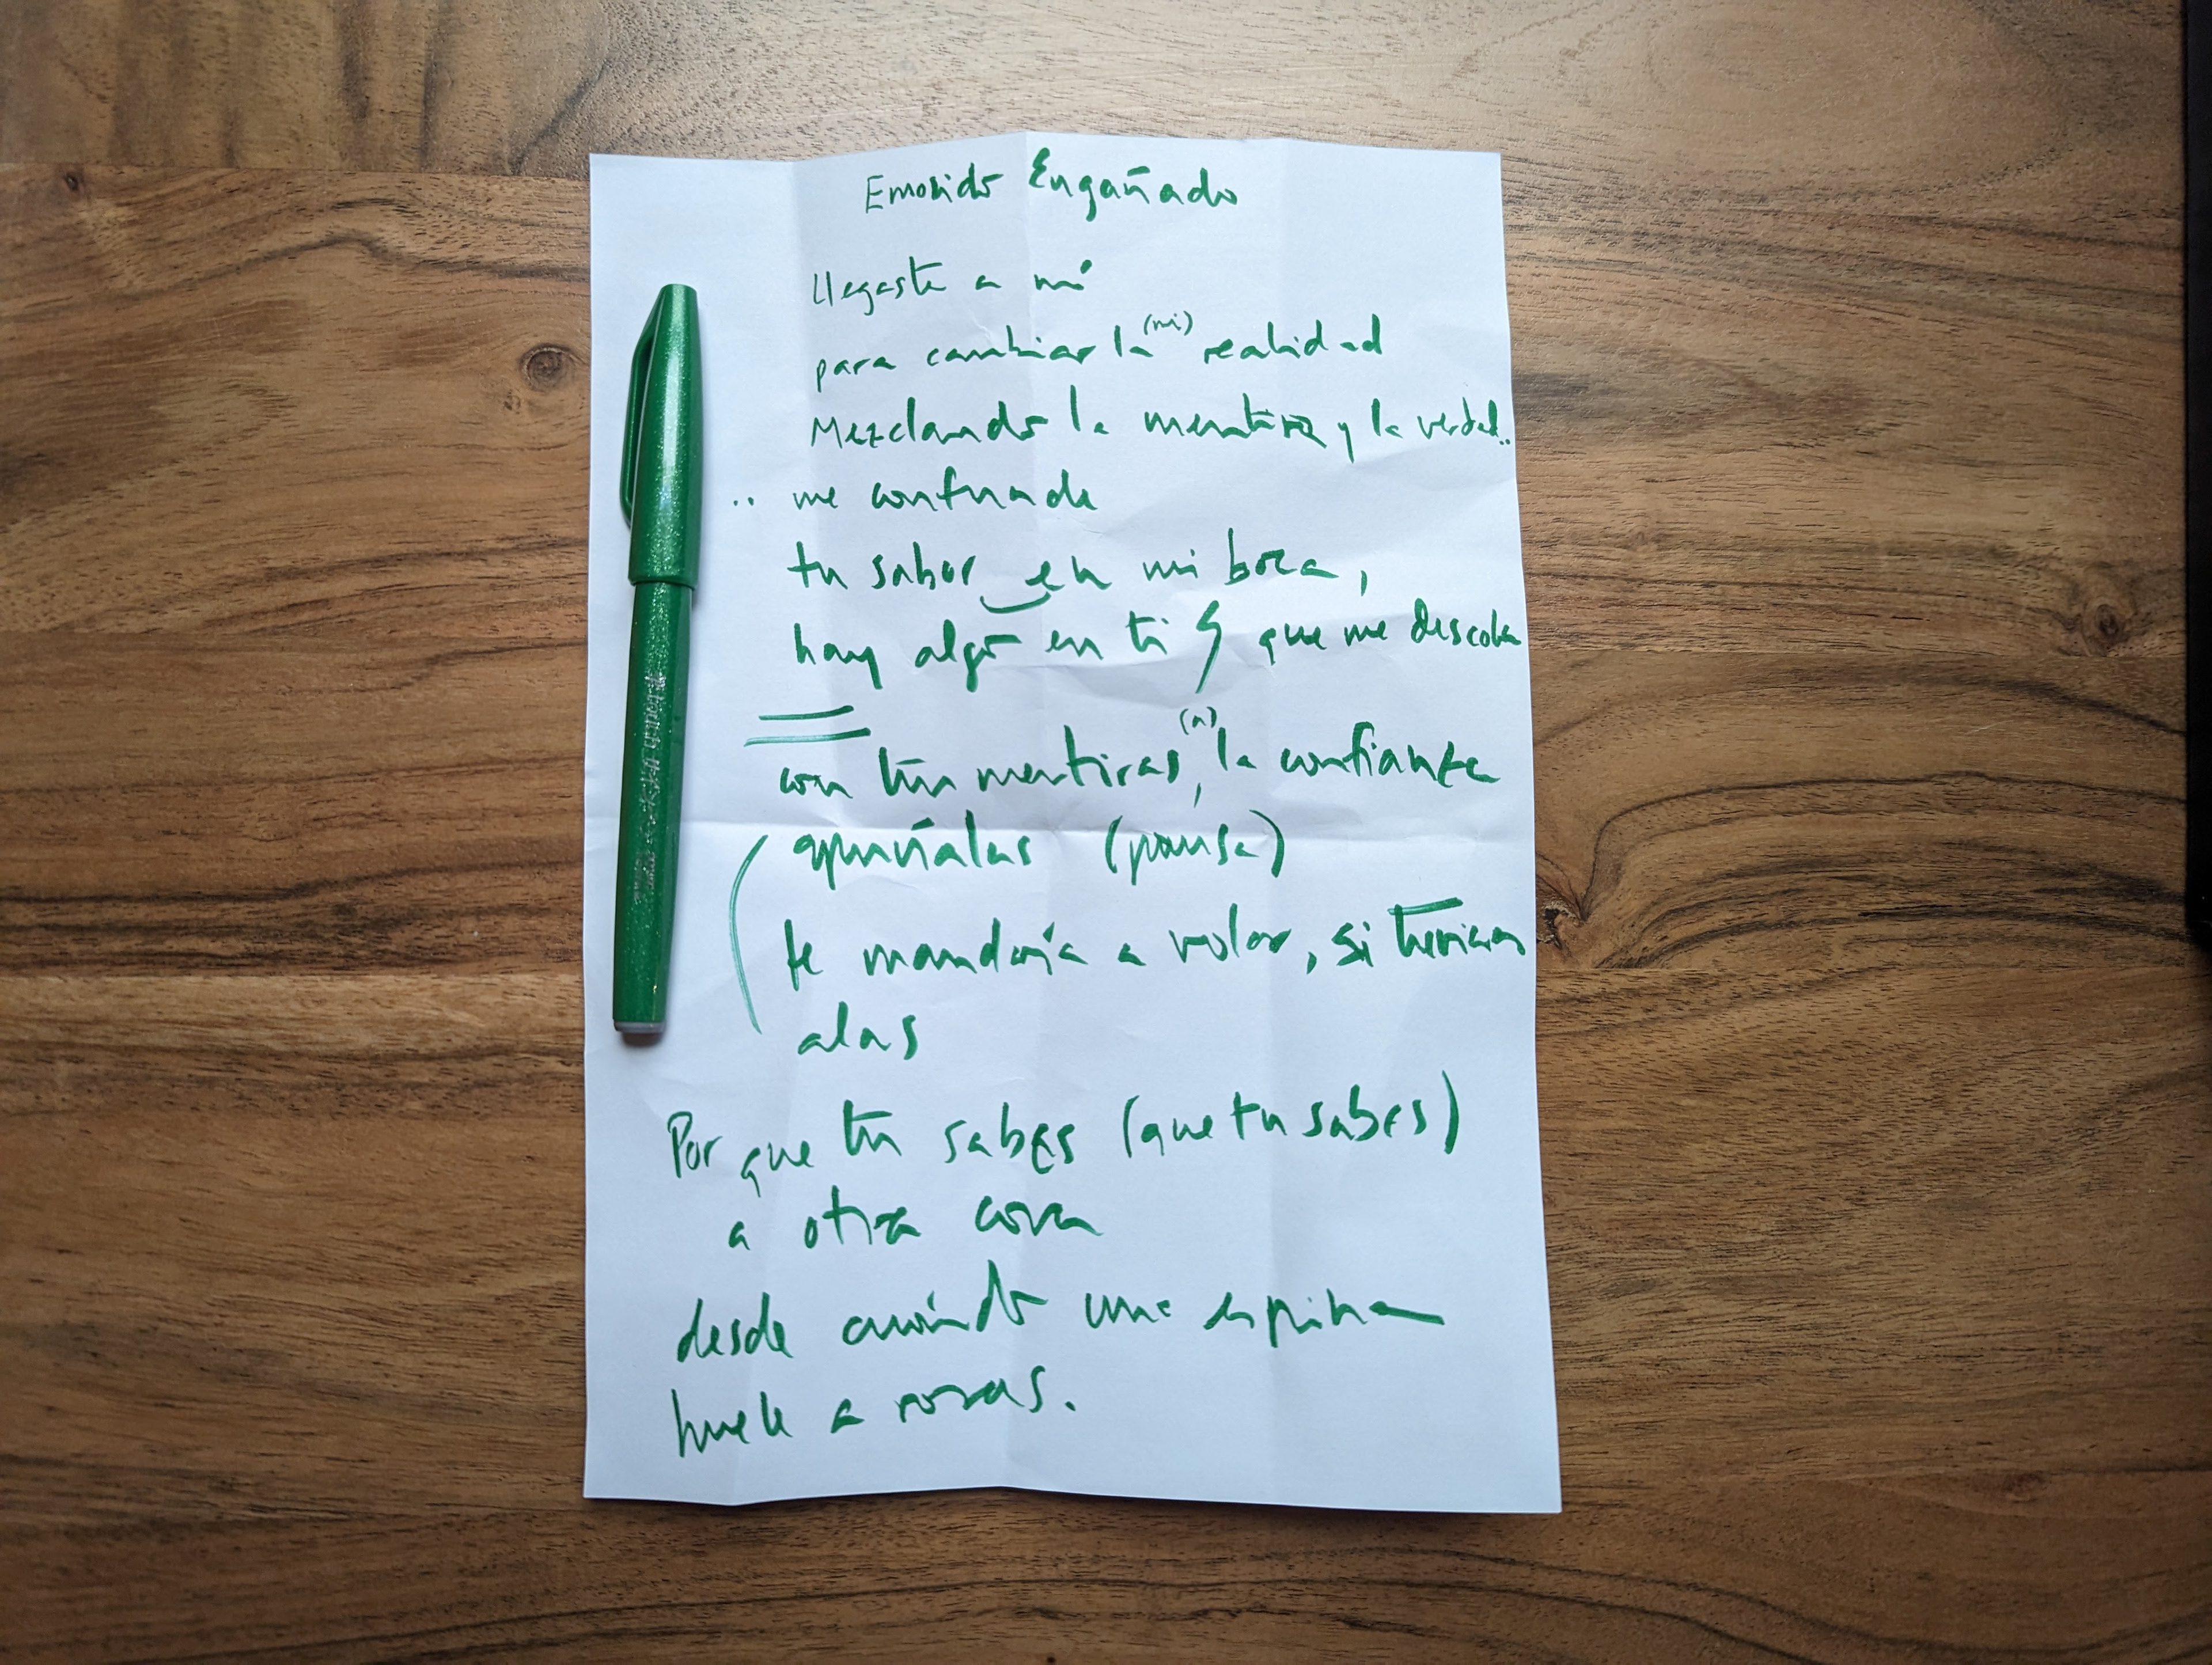 Emosido Engañado
llegaste a mí
para cambiar la (mi) realidad
Mezclando la mentira y la verdad..
.. me confunde
tu sabor en mi boca,
hay algo en ti que me descoloca
con tus mentiras, (a) la confianza
apuñalas (pausa)
te mandaría a volar, si tuvieras
alas
Por que tu sabes (que tu sabes)
a otra cosa
desde cuándo una espina
huele a rosas.